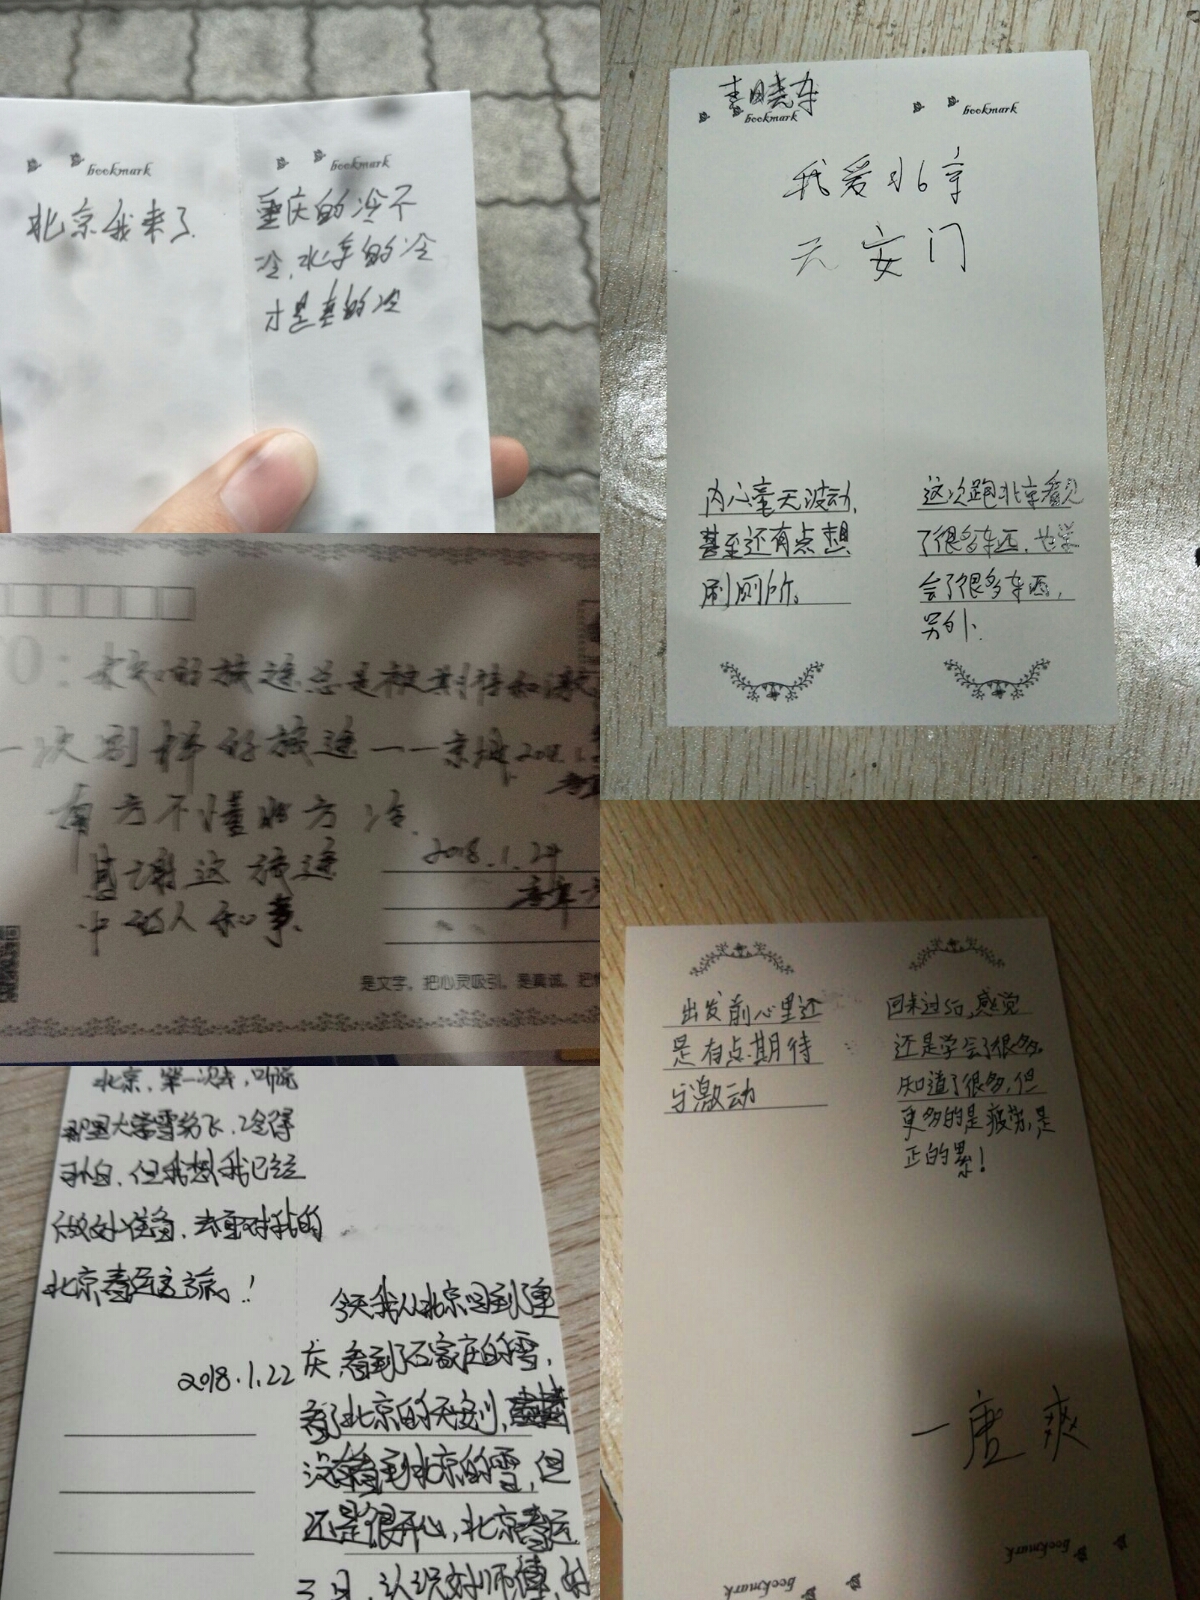 bookmark
北京我来了
bookmark
重庆的冷不
冷,北京的冷
才是真的冷
bookmark
bookmark
我爱北京
天安门
内心毫无波动,
甚至还有点想
刷厕所。
这次跑北京看见
了很多东西,也学
会了很多东西,
另外.
O:
的旅途总是被期待和激
一次别样的旅途——京
南方不懂北方冷.
感谢这旅途
中的人和事.
2018.1.24
是文字。把心灵吸引。是真诚。把
出发前心里还
是有点期待
与激动
回来过后,感觉
还是学会了很多,
知道了很多,但
更多的是疲惫,是
正的累!
一唐爽
bookmark
bookmark
北京,第一次去,听说
那里大雪纷飞,冷得
但我想我已经
做好准备,去面对我的
北京春运之旅!
2018.1.22
今天我从北京回到重
庆,看到了石家庄的雪,
看了北京的
没有看到北京的雪,但
还是很开心,北京春运
三日,认识好师傅,